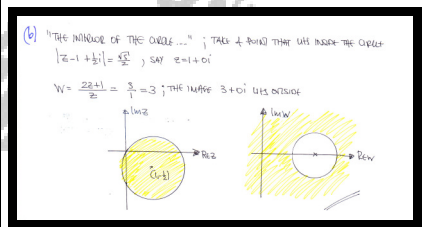 (b) "THE INTERIOR OF THE CIRCLE...." ; TAKE A POINT THAT LIES INSIDE THE CIRCLE
|z-1+½i| = √5/2 , SAY z=1+0i
W = 2z+1/z = 3/1 = 3 ; THE IMAGE 3+0i LIES OUTSIDE
Imz
Imw
Rez
Rew
(1,-½)